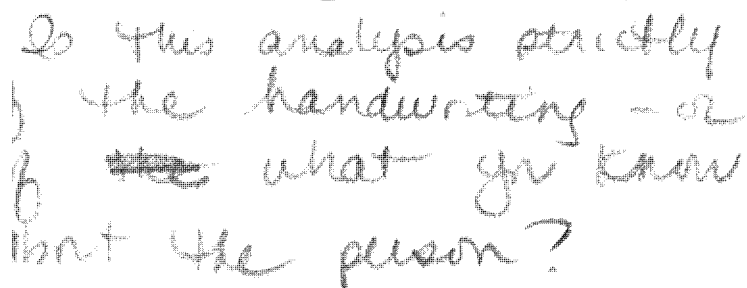 Is this analysis strictly
the handwriting - or
what you know
the person?